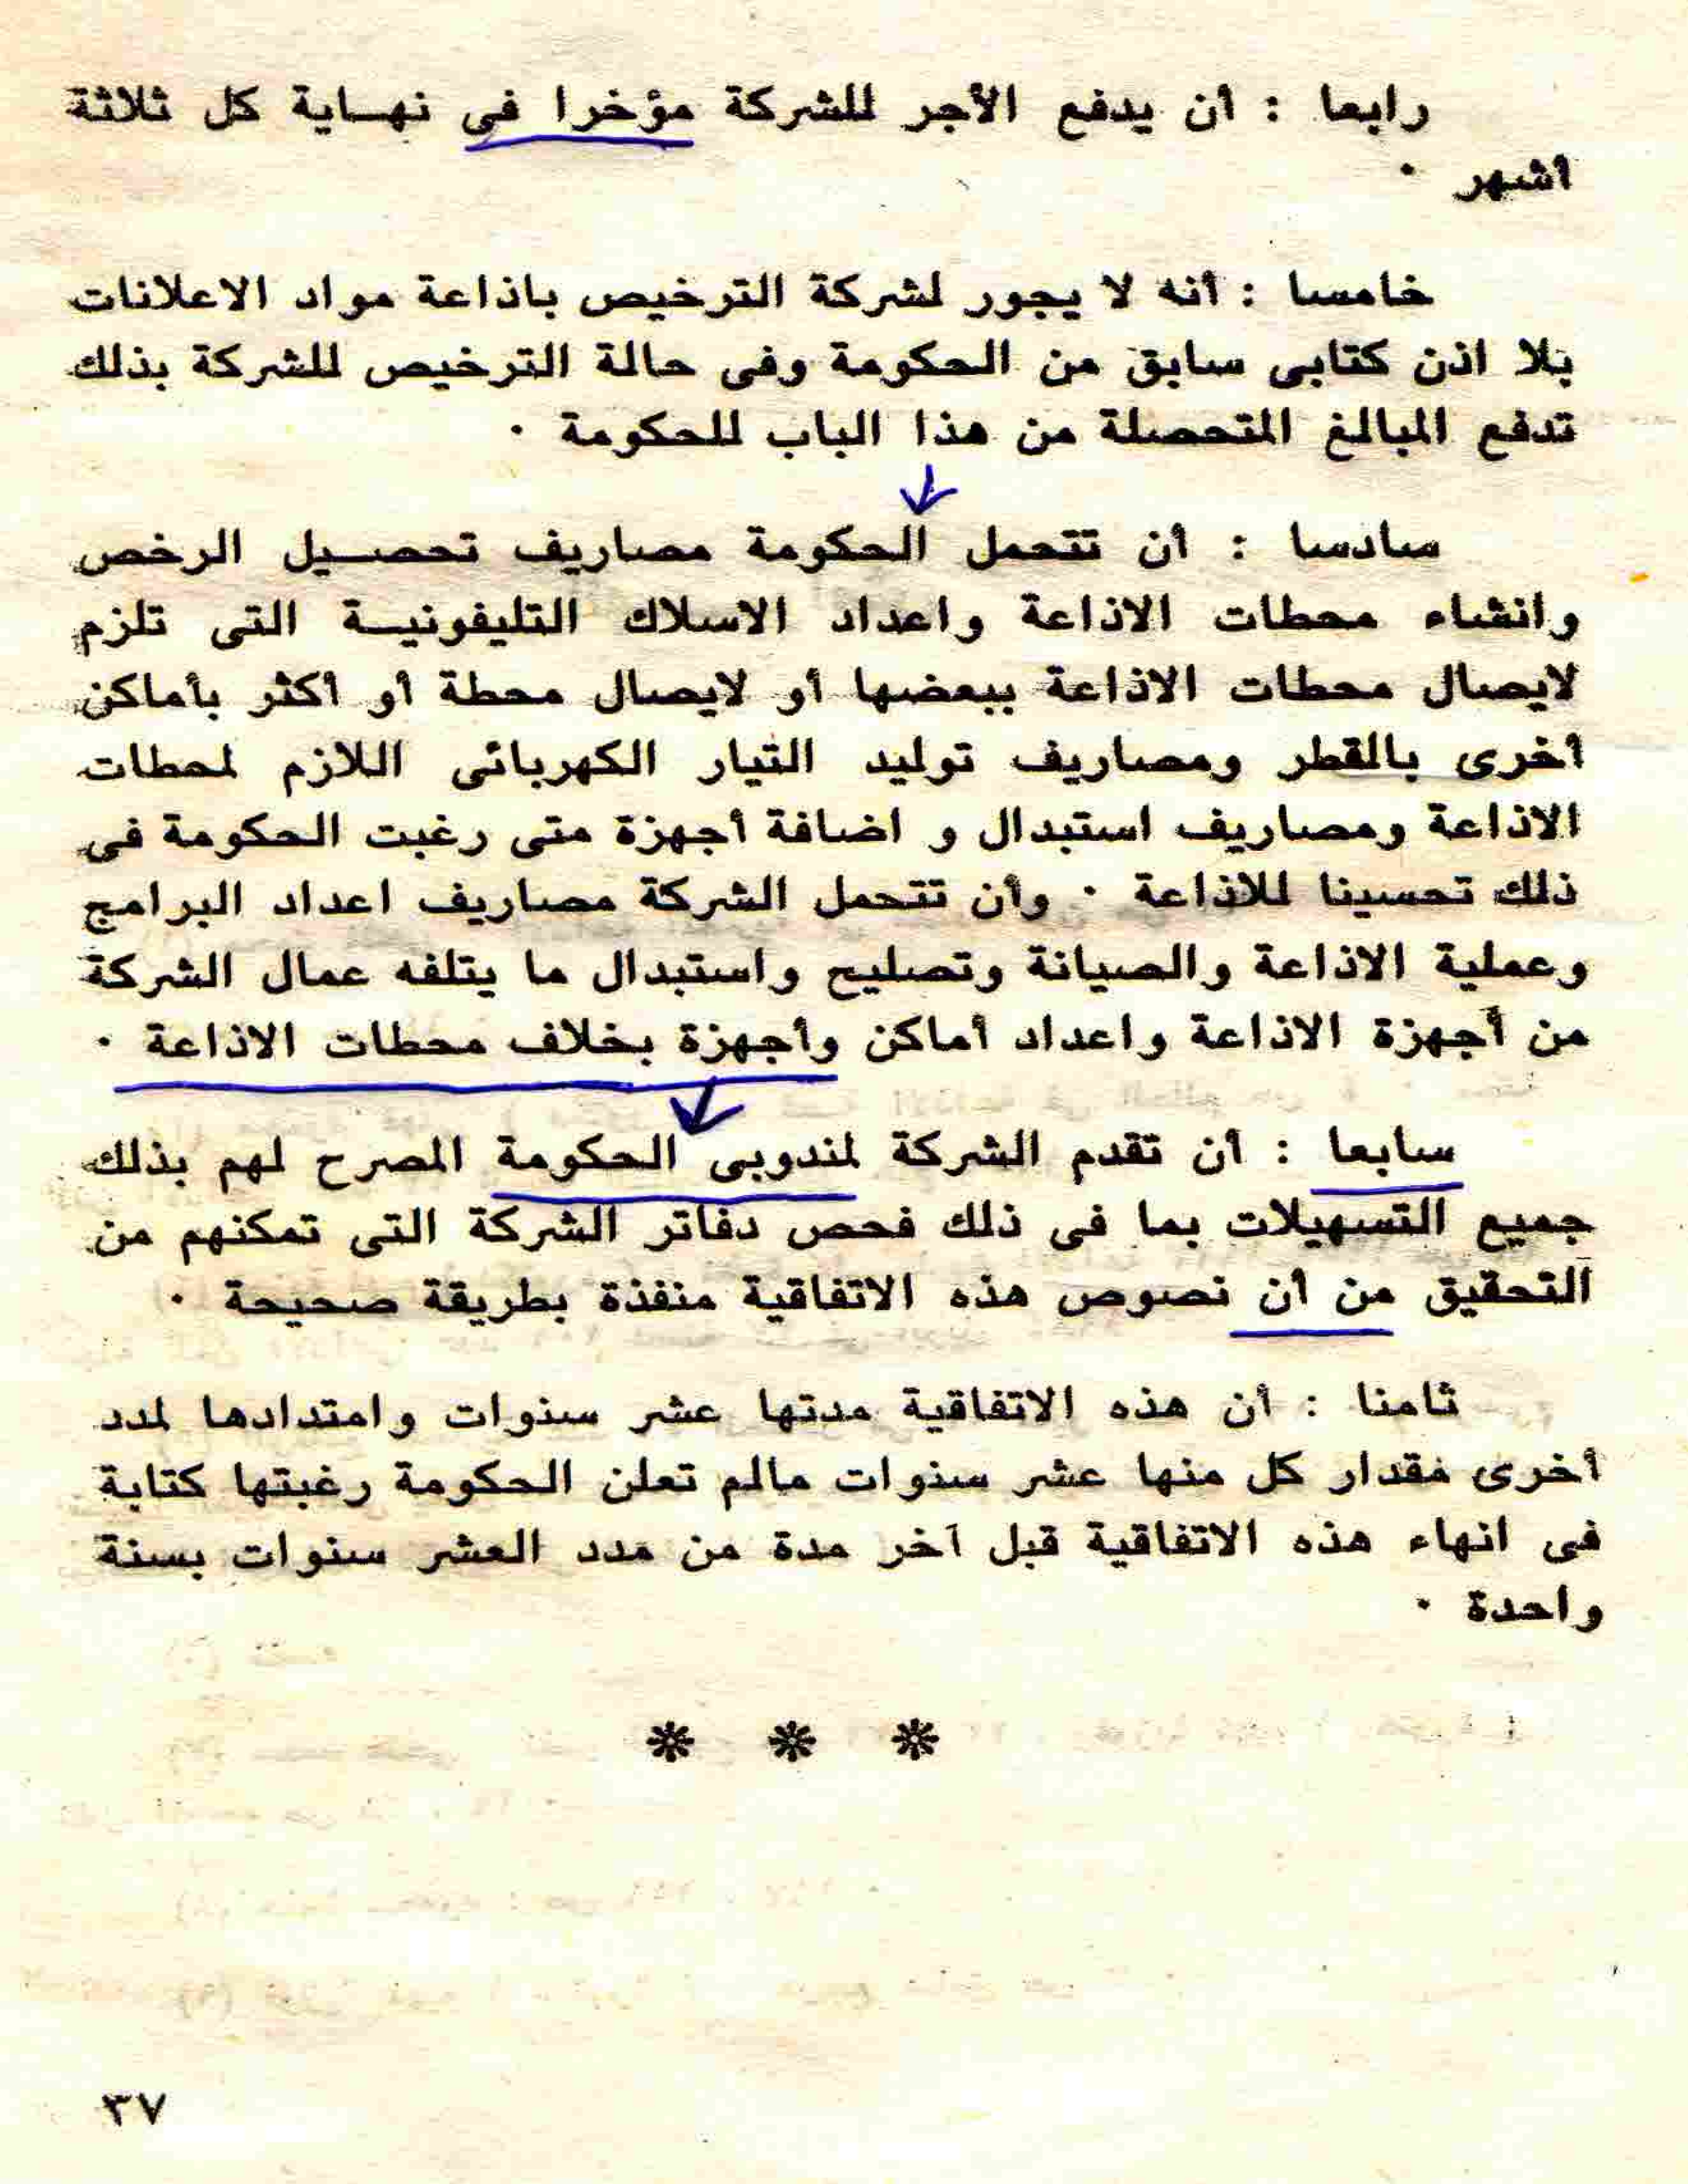 رابعا : أن يدفع الأجر للشركة مؤخرا فى نهـاية كل ثلاثة
أشهر ٠
خامسا : أنه لا يجور لشركة الترخيص باذاعة مواد الاعلانات
بلا اذن كتابى سابق من الحكومة وفى حالة الترخيص للشركة بذلك
تدفع المبالغ المتحصلة من هذا الباب للحكومة ٠
سادسا : أن تتحمل الحكومة مصاريف تحصـيل الرخص
وانشاء محطات الاذاعة واعداد الاسلاك التليفونيـة التى تلزم
لايصال محطات الاذاعة ببعضها أو لايصال محطة أو أكثر بأماكن
أخرى بالقطر ومصاريف توليد التيار الكهربائى اللازم لمحطات
الاذاعة ومصاريف استبدال و اضافة أجهزة متى رغبت الحكومة فى
ذلك تحسينا للاذاعة ٠ وأن تتحمل الشركة مصاريف اعداد البرامج
وعملية الاذاعة والصيانة وتصليح واستبدال ما يتلفه عمال الشركة
من أجهزة الاذاعة واعداد أماكن وأجهزة بخلاف محطات الاذاعة ٠
سابعا : أن تقدم الشركة لمندوبى الحكومة المصرح لهم بذلك
جميع التسهيلات بما فى ذلك فحص دفاتر الشركة التى تمكنهم من
التحقيق من أن نصوص هذه الاتفاقية منفذة بطريقة صحيحة ٠
ثامنا : أن هذه الاتفاقية مدتها عشر سنوات وامتدادها لمدد
أخرى مقدار كل منها عشر سنوات مالم تعلن الحكومة رغبتها كتابة
فى انهاء هذه الاتفاقية قبل آخر مدة من مدد العشر سنوات بسنة
واحدة ٠
* * *
٣٧